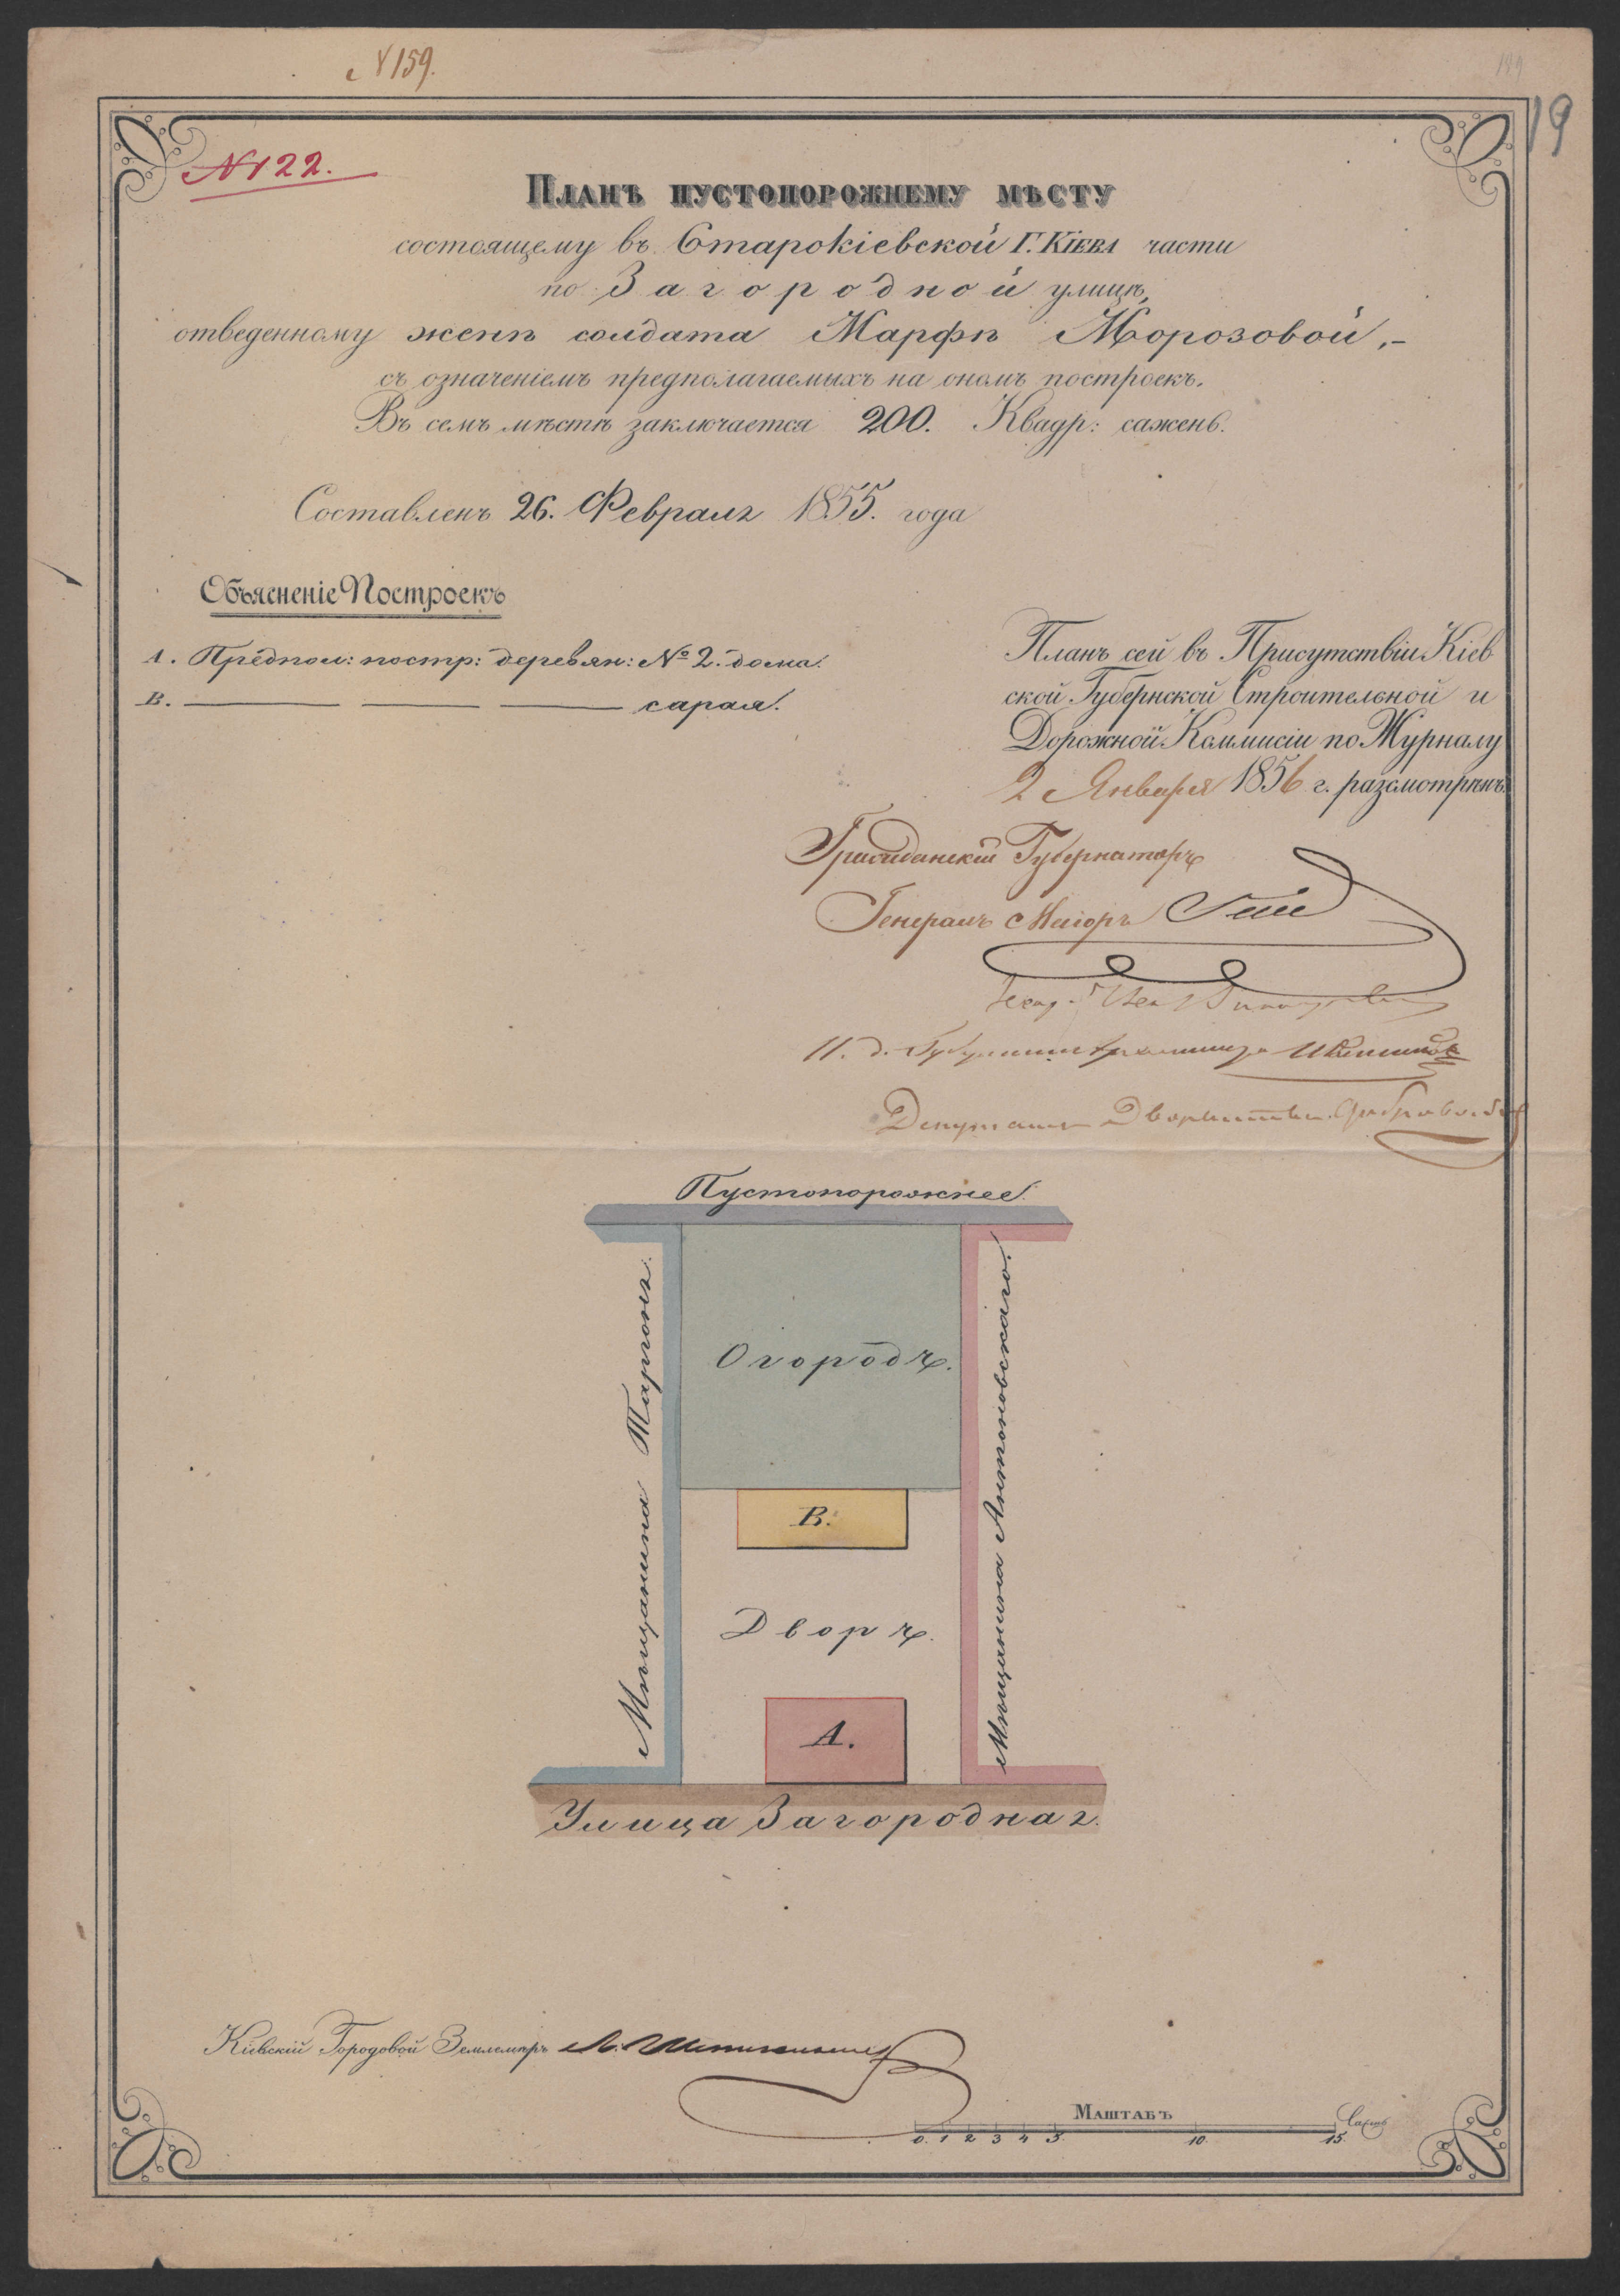 № 159.
19
№ 122.
Планъ пустопорожнему мѣсту
состоящему въ Старокіевской Г. Кіева части
по Загородной улицѣ,
отведенному женѣ солдата Марфѣ Морозовой,-
съ означеніемъ предполагаемыхъ на ономъ построекъ.
Въ семъ мѣстѣ заключается 200. Квадр: сажень.
Составленъ 26. Февраля 1855. года
Объясненіе Построекъ
А. Предпол: постр: деревян: № 2. дома.
В. ——— ——— ——— сарая.
Планъ сей въ Присутствіи Кіев
ской Губернской Строительной и
Дорожной Коммисіи по Журналу
2 Января 1856 г. разсмотрѣнъ.
Гражданскій Губернаторъ
Генералъ Маіоръ
И. д.
Депутатъ Дворянства
Пустопорожнее.
Мѣщанина Таргонъ.
Огородъ.
Мѣщанина Антоновскаго.
В.
Дворъ.
А.
Улица Загородная.
Кіевскій Городовой Землемѣръ
Маштабъ
Саженъ
0. 1 2 3 4 5 10. 15.